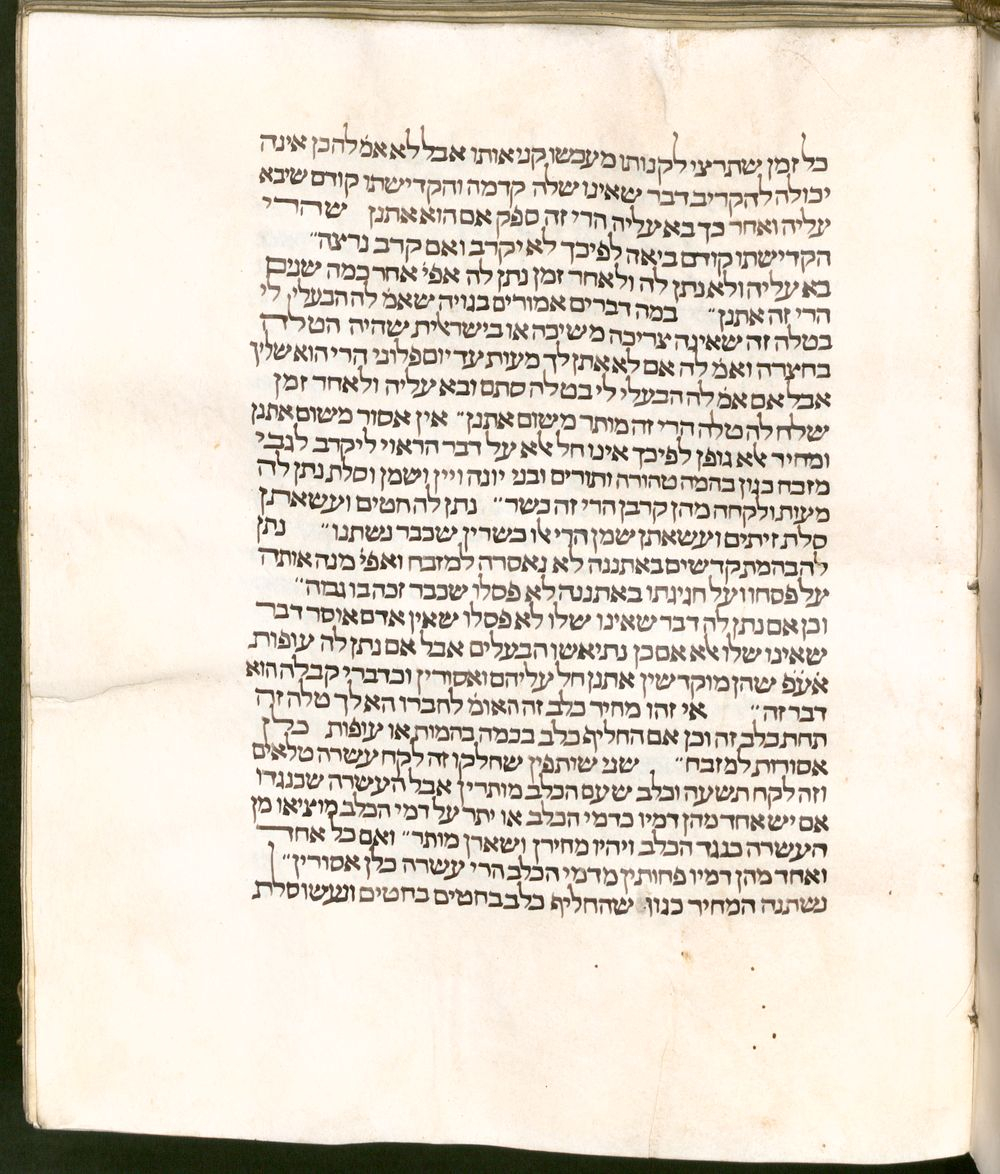 כל זמן שתרצי לקנותו מעכשו קני אותו אבל לא אמ׳ להכן אינה
יכולה להקריב דבר שאינו שלה קדמה והקדישתו קודם שיבא
עליה ואחר כך בא עליה הרי זה ספק אם הוא אתנן שהרי
הקדישתו קודם ביאה לפיכך לא יקרב ואם קרב נרצה״
בא עליה ולא נתן לה ולאחר זמן נתן לה אפי׳ אחר כמה שנים
הרי זה אתנן״ במה דברים אמורים בגויה שאמ׳ לה הבעלין לי
בטלה זה שאינה צריכה משיכה או בישראלית שהיה הטלה
בחצרה ואמ׳ לה אם לא אתן לך מעות עד יום פלוני הרי הוא שלין
אבל אם אמ׳ לה הבעלי לי בטלה סתם ובא עליה ולאחד זמן
שלח לה טלה הרי זה מותר משום אתנן״ אין אסור משום אתנן
ומחיר אלא גופן לפיכך אינו חל אלא על דבר הראוי ליקרב לגבי
מזבח כגון בהמה טהורה ותורים ובני יונה ויין ושמן וסלת נתן לה
מעות ולקחה מהן קרבן הרי זה כשר״ נתן לה חטים ועשאתן
סלת זיתים ועשאתן שמן הרי אלו כשרין שכבר נשתנו״ נתן
לה בהמת קדשים באתננה לא נאסרה למזבח ואפי׳ מנה אותה
על פסחו ועל חגיגתו באתננה לא פסלו שכבר זכה בו גבוה״
וכן אם נתן לה דבר שאינו שלו לא פסלו שאין אדם אוסר דבר
שאינו שלו אלא אם כן נתיאשו הבעלים אבל אם נתן לה עופות
אע׳פ שהן מוקדשין אתנן חל עליהם ואסורין ובדברי קבלה הוא
דבר זה״ אי זהו מחיר כלב זה האומ׳ לחברו האלך טלה זה
תחת כלב זה וכן אם החליף כלב בכמה בהמות או עופות כלן
אסורות למזבח״ שני שותפין שחלקו זה לקח עשרה טלאים
וזה לקח תשעה וכלב שעם הכלב מותרין אבל העשרה שכנגדו
אם יש אחד מהן דמיו כדמי הכלב או יתר על דמי הכלב מוציאו מן
העשרה כנגד הכלב ויהיו מחירן ושארן מותר״ ואם כל אחד
ואחד מהן דמיו פחותין מדמי הכלב הרי עשרה כלן אסורין״
נשתנה המחיר כגון שהחליף כלב בחטים בחטים ונעשו סלת